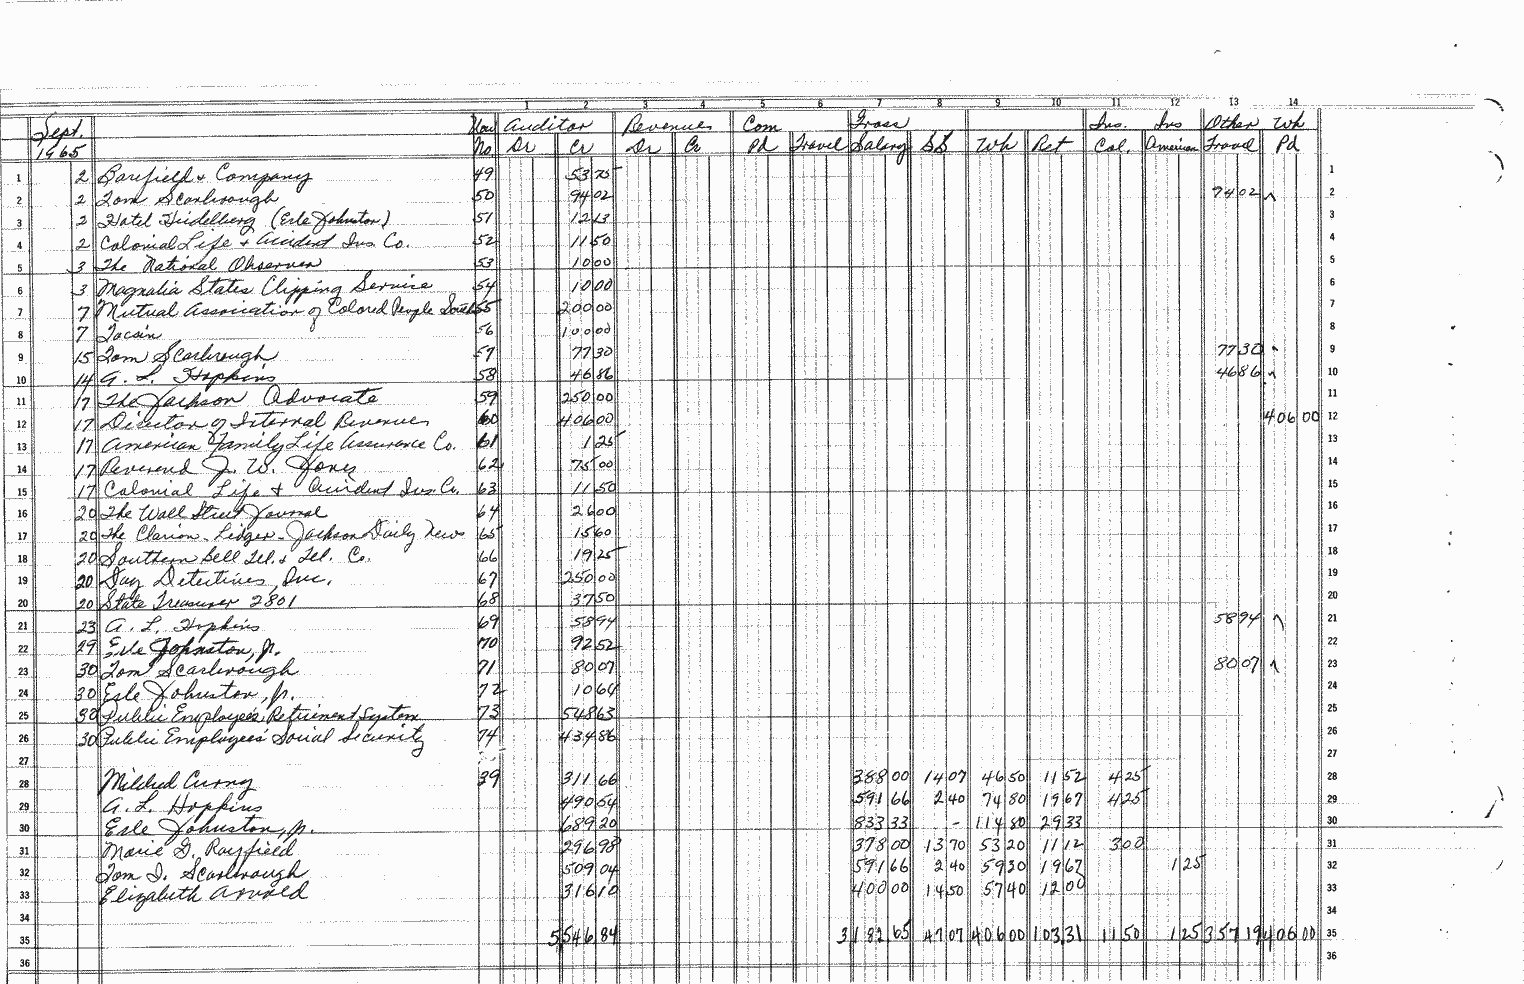 1 2 3 4 5 6 7 8 9 10 11 12 13 14
Sept. Auditor Revenues Com Gross Ins. Ins Other Wh
1965 No. Dr Cr Dr Cr Pd Travel Salary SS Wh Ret Col. American Travel Pd
1 2 Barefield & Company 49 53 75 1
2 2 Tom Scarbrough 50 94 02 74 02 2
3 2 Hotel Heidelberg (Erle Johnston) 51 12 13 3
4 2 Colonial Life & Accident Ins Co. 52 11 50 4
5 3 The National Observer 53 10 00 5
6 3 Magnolia States Clipping Service 54 10 00 6
7 7 Mutual Association of Colored People South 55 200 00 7
8 7 56 100 00 8
9 15 Tom Scarbrough 57 77 30 77 30 9
10 14 A. L. Hopkins 58 46 86 46 86 10
11 17 The Jackson Advocate 59 250 00 11
12 17 Director of Internal Revenue 60 406 00 406 00 12
13 17 American Family Life Assurance Co. 61 1 25 13
14 17 Reverend J. W. Jones 62 75 00 14
15 17 Colonial Life & Accident Ins. Co. 63 11 50 15
16 20 The Wall Street Journal 64 26 00 16
17 20 The Clarion-Ledger-Jackson Daily News 65 15 60 17
18 20 Southern Bell Tel. & Tel. Co. 66 19 25 18
19 20 Day Detectives, Inc. 67 250 00 19
20 20 State Treasurer 2801 68 37 50 20
21 23 A. L. Hopkins 69 58 94 58 94 21
22 29 Erle Johnston, Jr. 70 92 52 22
23 30 Tom Scarbrough 71 80 07 80 07 23
24 30 Erle Johnston, Jr. 72 10 64 24
25 30 Public Employees' Retirement System 73 548 63 25
26 30 Public Employees' Social Security 74 434 86 26
27 27
28 Mildred Curry 39 311 66 388 00 14 07 46 50 11 52 4 25 28
29 A. L. Hopkins 490 54 591 66 2 40 74 80 19 67 4 25 29
30 Erle Johnston, Jr. 689 20 833 33 - 114 80 29 33 30
31 Marie G. Rayfield 296 98 378 00 13 70 53 20 11 12 3 00 31
32 Tom J. Scarbrough 509 04 591 66 2 40 59 30 19 67 1 25 32
33 Elizabeth Arnold 316 10 400 00 14 50 57 40 12 00 33
34 34
35 5 546 84 3 182 65 47 07 406 00 103 31 11 50 1 25 357 19 406 00 35
36 36